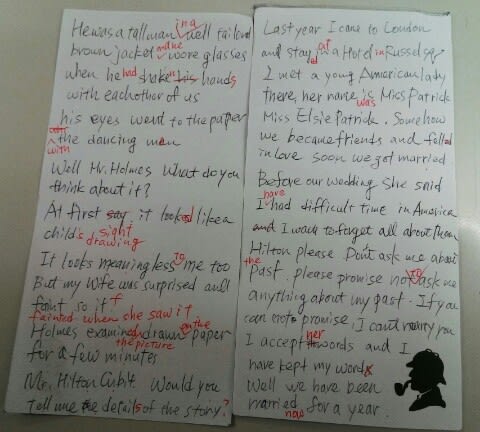 He was a tall man in a well tailored
brown jacket and he wore glasses
when he had shaken his hands
with each other of us
his eyes went to the paper
with the dancing men
Well Mr. Holmes What do you
think about it?
At first say sight it looked like a
child's drawing
It looks meaningless to me too
But my wife was surprised and
faint so it f
fainted when she saw it
Holmes examined drawn on the paper
the picture
for a few minutes
Mr. Hilton Cubit. Would you
tell me the details of the story?
Last year I came to London
and stayed at a Hotel in Russel sq.
I met a young American lady
there, her name is was Miss Patrick
Miss Elsie Patrick. Somehow
we became friends and felled
in love soon we got married
Before our wedding she said
I have had difficult time in America
and I want to forget all about them
Hilton please Don't ask me about
the past. please promise not to ask me
anything about my past. If you
can not promise I can't marry you
I accept her words and I
have kept my words
Well we have been
married now for a year.